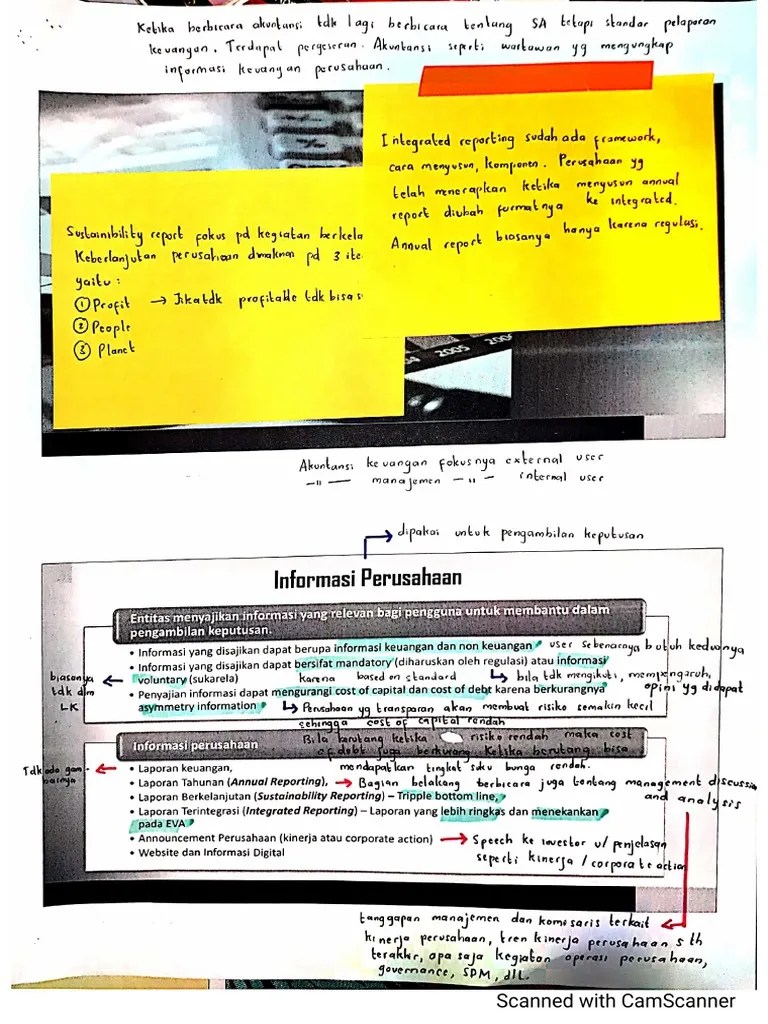 Ketika berbicara akuntansi tdk lagi berbicara tentang SA tetapi standar pelaporan
keuangan. Terdapat pergeseran. Akuntansi seperti wartawan yg mengungkap
informasi keuangan perusahaan.
Integrated reporting sudah ada framework,
cara menyusun, komponen. Perusahaan yg
telah menerapkan ketika menyusun annual
report diubah formatnya ke integrated.
Annual report biasanya hanya karena regulasi.
Sustainibility report fokus pd kegiatan berkela
Keberlanjutan perusahaan dmaknai pd 3 ite
yaitu :
① Profit → Jika tdk profitable tdk bisa s
② People
③ Planet
2005
Akuntansi keuangan fokusnya external user
–〃– manajemen –〃– internal user
dipakai untuk pengambilan keputusan
Informasi Perusahaan
Entitas menyajikan informasi yang relevan bagi pengguna untuk membantu dalam
pengambilan keputusan.
• Informasi yang disajikan dapat berupa informasi keuangan dan non keuangan user sebenarnya butuh keduanya
• Informasi yang disajikan dapat bersifat mandatory (diharuskan oleh regulasi) atau informasi
voluntary (sukarela) karena based on standard bila tdk mengikuti, mempengaruhi
opini yg didapat
biasanya
tdk dlm
LK
• Penyajian informasi dapat mengurangi cost of capital dan cost of debt karena berkurangnya
asymmetry information Perusahaan yg transparan akan membuat risiko semakin kecil
sehingga cost of capital rendah
Bila berutang ketika risiko rendah maka cost
of debt juga berkurang. Ketika berutang bisa
mendapatkan tingkat suku bunga rendah.
Informasi perusahaan
Tdk ada gam-
barnya
• Laporan keuangan,
• Laporan Tahunan (Annual Reporting), → Bagian belakang berbicara juga tentang management discussion
and analysis
• Laporan Berkelanjutan (Sustainability Reporting) – Tripple bottom line,
• Laporan Terintegrasi (Integrated Reporting) – Laporan yang lebih ringkas dan menekankan
pada EVA
• Announcement Perusahaan (kinerja atau corporate action) → Speech ke investor u/ penjelasan
seperti kinerja / corporate action
• Website dan Informasi Digital
tanggapan manajemen dan komisaris terkait
kinerja perusahaan, tren kinerja perusahaan 5 th
terakhir, apa saja kegiatan operasi perusahaan,
governance, SPM, dll.
Scanned with CamScanner